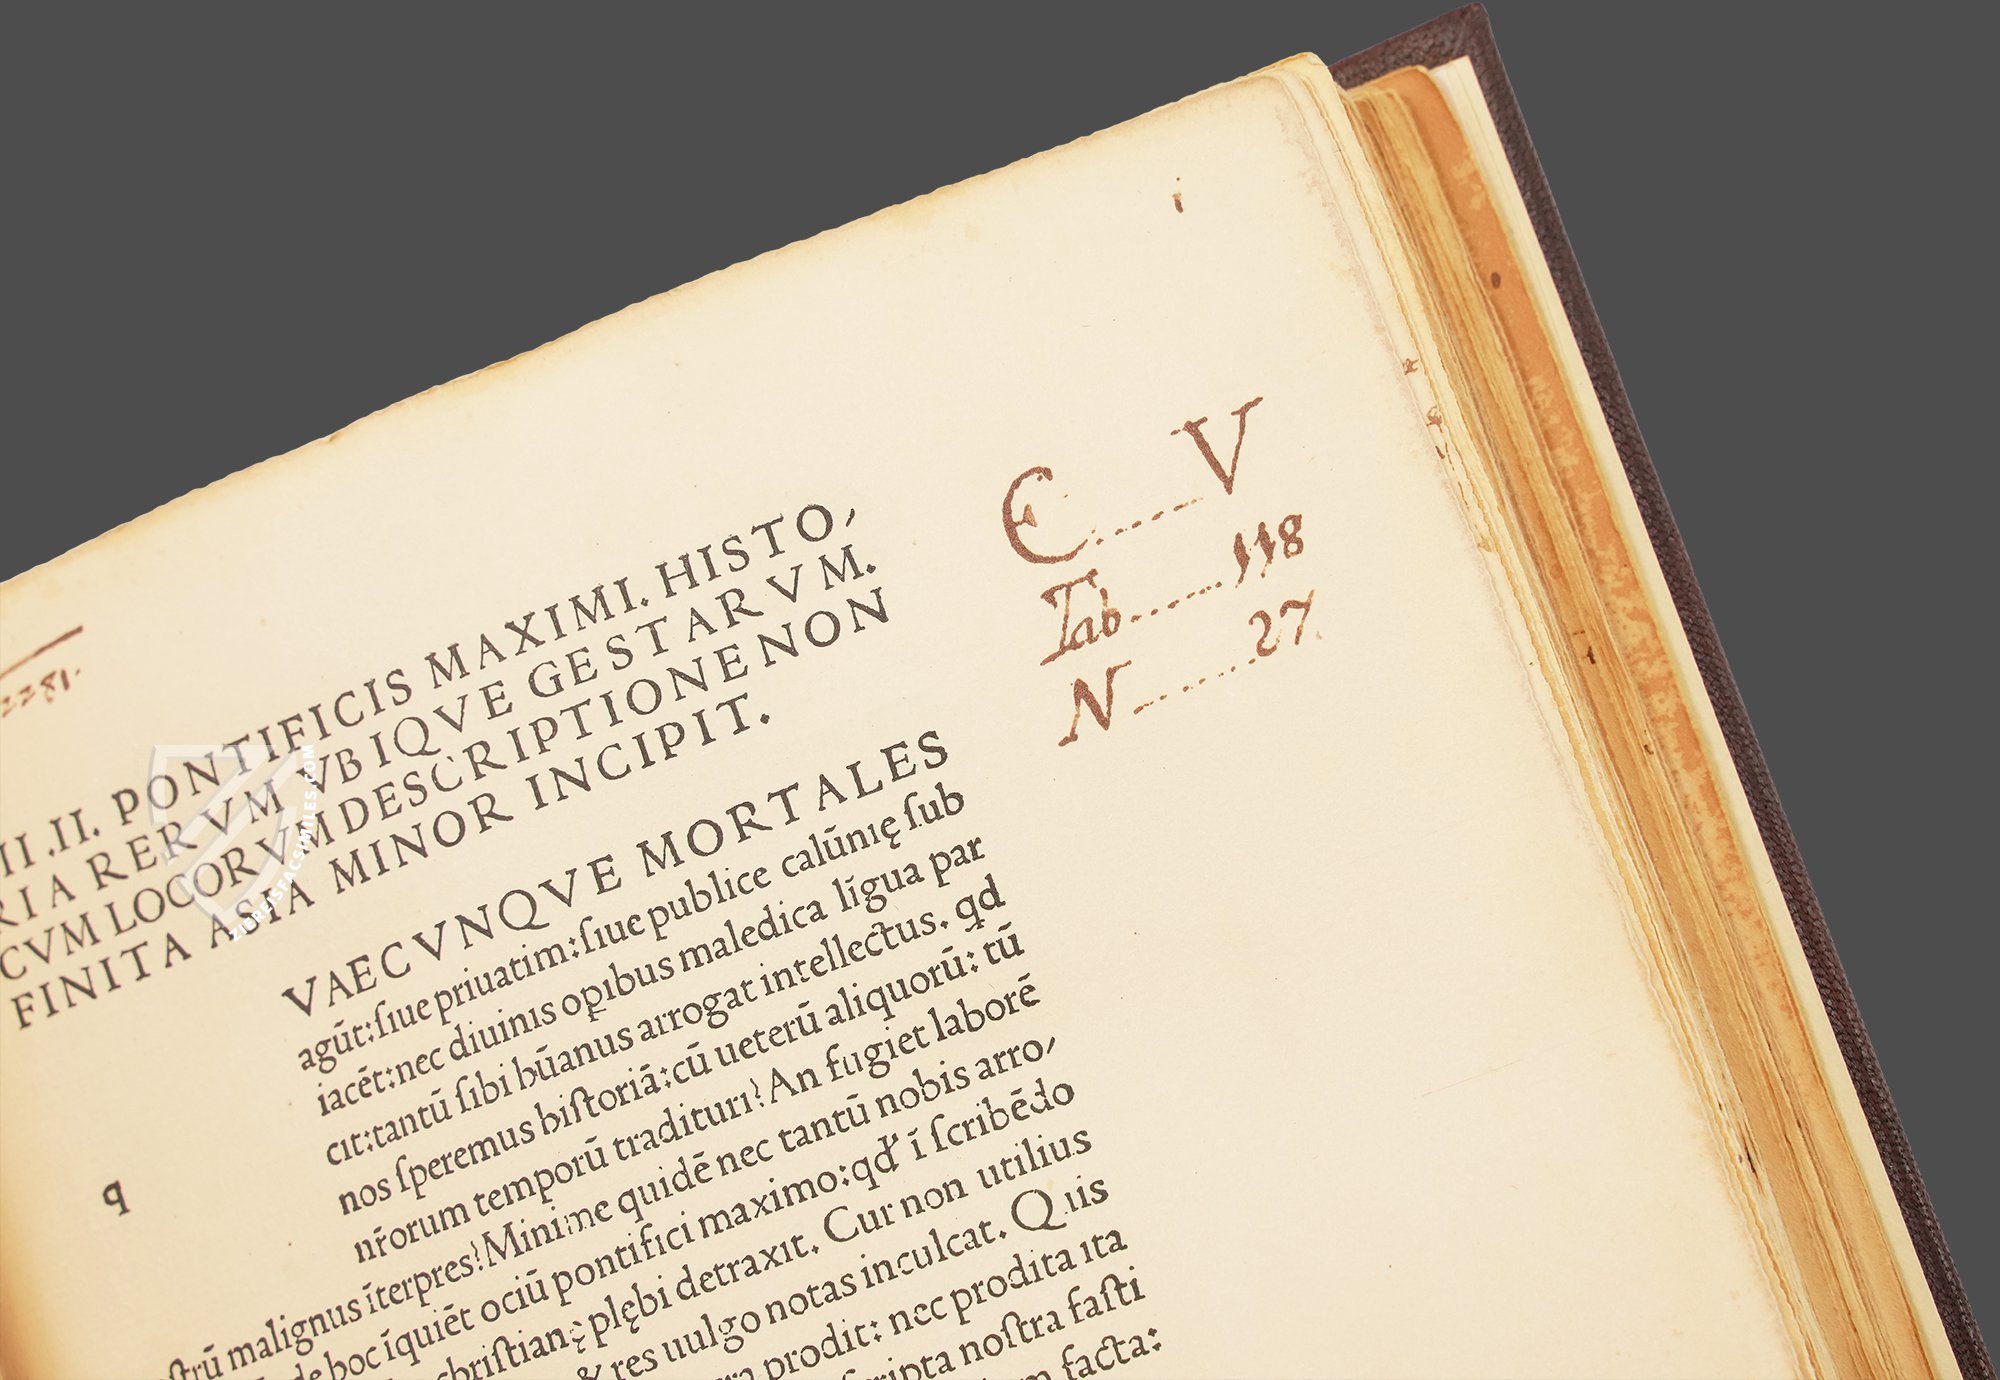 i
E......V
Tab......118
N......27.
2281.
II .II. PONTIFICIS MAXIMI. HISTO,
RIA RERVM VBIQVE GESTARVM.
CVM LOCORVM DESCRIPTIONE NON
FINITA ASIA MINOR INCIPIT.
VAECVNQVE MORTALES
q
agūt:ſiue priuatim:ſiue publice calūnię ſub
iacēt:nec diuinis opibus maledica līgua par
cit:tantū ſibi hūanus arrogat intellectus. qd
nos ſperemus hiſtoriā:cū ueterū aliquorū: tū
nr̄orum temporū tradituri? An fugiet laborē
malignus īterpres?Minime quidē nec tantū nobis arro,
de hoc īquiēt ociū pontifici maximo:qd' ī ſcribēdo
chriſtianę plębi detraxit. Cur non utilius
& res uulgo notas inculcat. Quis
prodit: nec prodita ita
noſtra faſti
facta:
ZIEREISFACSIMILES.COM